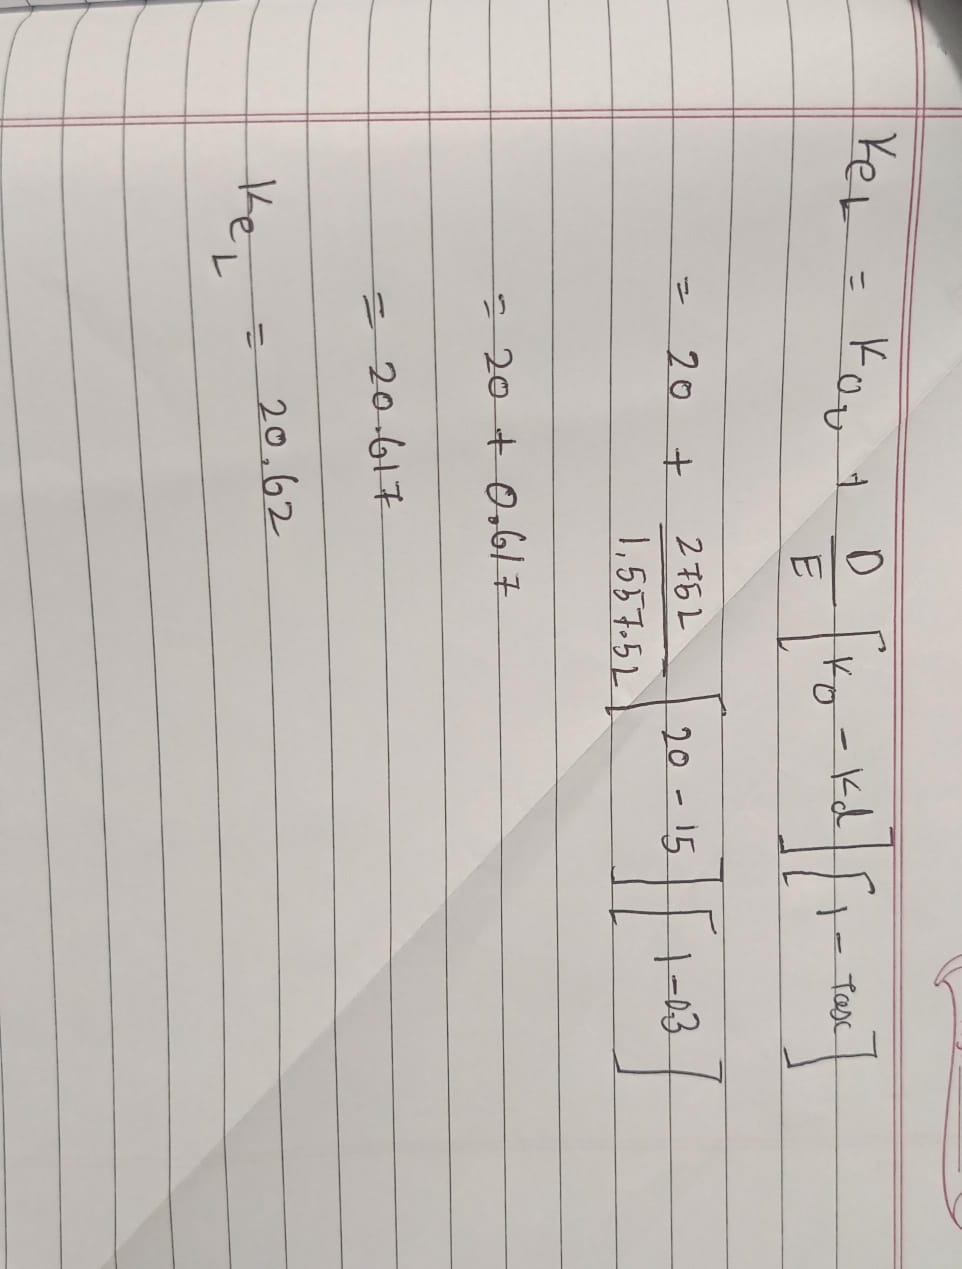 KeL = Kou + D/E [Ko - Kd] [1 - Tax]
= 20 + 2752/1,557.52 [20 - 15] [1-0.3]
= 20 + 0.617
= 20.617
KeL = 20.62